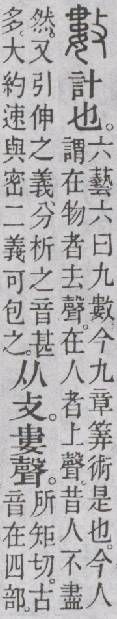 數計也。
六藝六曰九數。今九章筭術是也。今人
謂在物者去聲。在人者上聲。昔人不盡
然。又引伸之義分析之音甚
多。大約速與密二義可包之。
从攴。婁聲。
所矩切。古
音在四部。